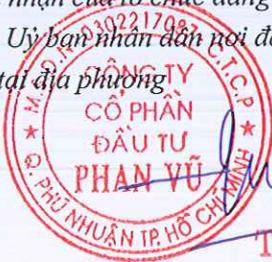 nhận của tổ chức đăng
Uỷ ban nhân dân nơi đ
tại địa phương
M.S.D.N: 03022170 C.T.C.P
CÔNG TY
CỔ PHẦN
ĐẦU TƯ
PHAN VŨ
Q. PHÚ NHUẬN TP. HỒ CHÍ MINH
T